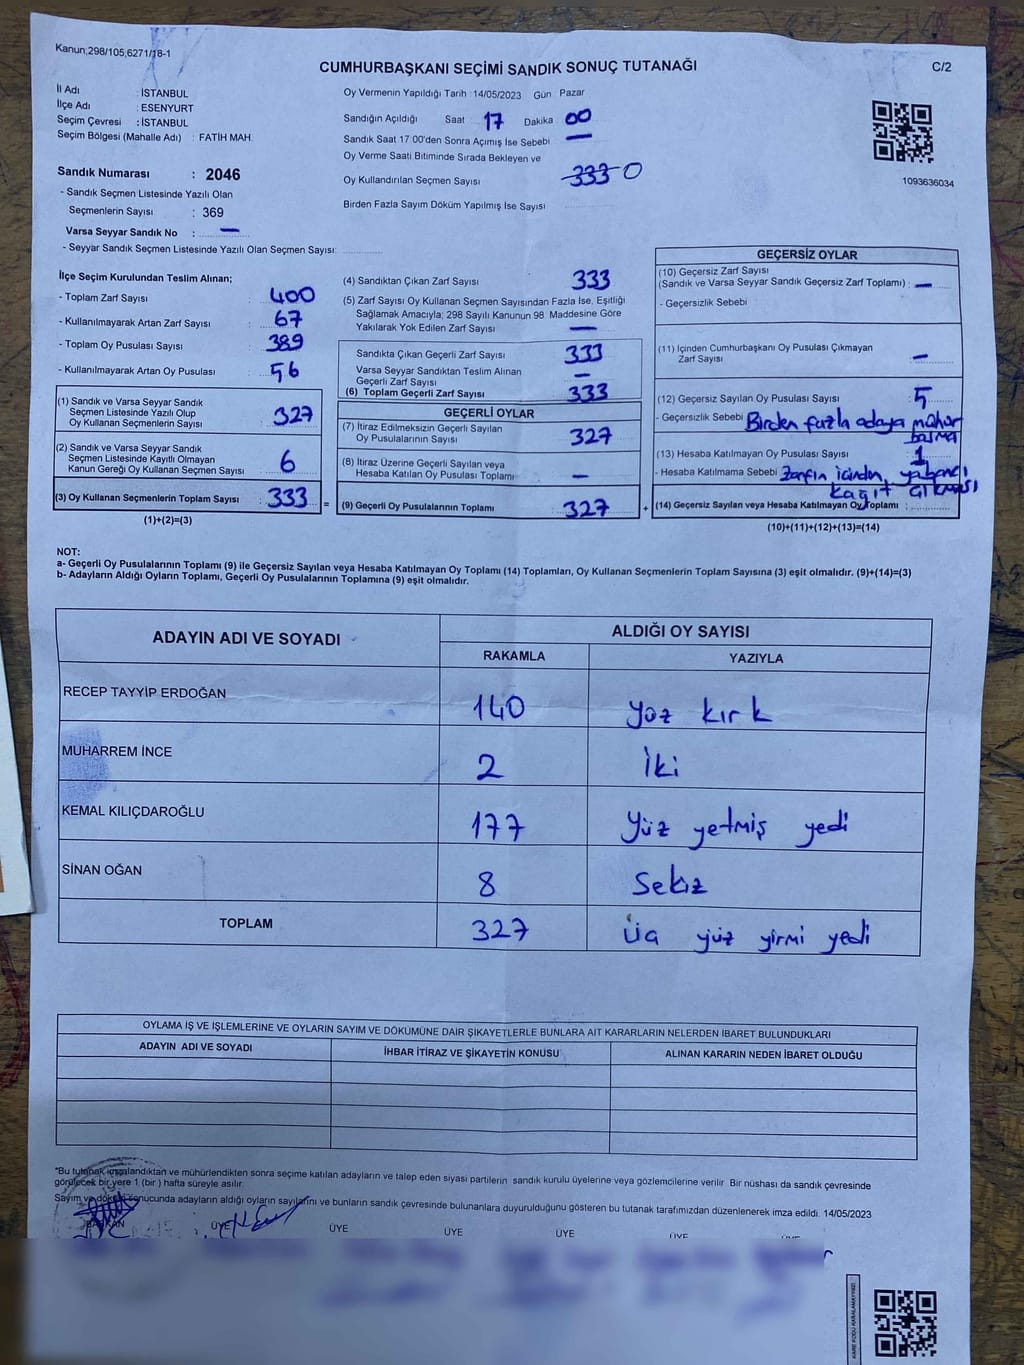 Kanun;298/105,6271/18-1
CUMHURBAŞKANI SEÇİMİ SANDIK SONUÇ TUTANAĞI
C/2
İl Adı : İSTANBUL
İlçe Adı : ESENYURT
Seçim Çevresi : İSTANBUL
Seçim Bölgesi (Mahalle Adı) : FATİH MAH.
Sandık Numarası : 2046
- Sandık Seçmen Listesinde Yazılı Olan
Seçmenlerin Sayısı : 369
Varsa Seyyar Sandık No : —
- Seyyar Sandık Seçmen Listesinde Yazılı Olan Seçmen Sayısı:
Oy Vermenin Yapıldığı Tarih : 14/05/2023 Gün : Pazar
Sandığın Açıldığı Saat 17 Dakika : 00
Sandık Saat 17:00'den Sonra Açımış İse Sebebi —
Oy Verme Saati Bitiminde Sırada Bekleyen ve
Oy Kullandırılan Seçmen Sayısı 333 0
Birden Fazla Sayım Döküm Yapılmış İse Sayısı
1093636034
İlçe Seçim Kurulundan Teslim Alınan;
- Toplam Zarf Sayısı : 400
- Kullanılmayarak Artan Zarf Sayısı : 67
- Toplam Oy Pusulası Sayısı : 389
- Kullanılmayarak Artan Oy Pusulası : 56
(1) Sandık ve Varsa Seyyar Sandık
Seçmen Listesinde Yazılı Olup
Oy Kullanan Seçmenlerin Sayısı : 327
(2) Sandık ve Varsa Seyyar Sandık
Seçmen Listesinde Kayıtlı Olmayan
Kanun Gereği Oy Kullanan Seçmen Sayısı : 6
(3) Oy Kullanan Seçmenlerin Toplam Sayısı : 333 =
(1)+(2)=(3)
(4) Sandıktan Çıkan Zarf Sayısı 333
(5) Zarf Sayısı Oy Kullanan Seçmen Sayısından Fazla İse, Eşitliği
Sağlamak Amacıyla; 298 Sayılı Kanunun 98. Maddesine Göre
Yakılarak Yok Edilen Zarf Sayısı —
Sandıkta Çıkan Geçerli Zarf Sayısı 333
Varsa Seyyar Sandıktan Teslim Alınan
Geçerli Zarf Sayısı —
(6) Toplam Geçerli Zarf Sayısı 333
GEÇERLİ OYLAR
(7) İtiraz Edilmeksizin Geçerli Sayılan
Oy Pusulalarının Sayısı : 327
(8) İtiraz Üzerine Geçerli Sayılan veya
Hesaba Katılan Oy Pusulası Toplamı : —
(9) Geçerli Oy Pusulalarının Toplamı : 327 +
GEÇERSİZ OYLAR
(10) Geçersiz Zarf Sayısı
(Sandık ve Varsa Seyyar Sandık Geçersiz Zarf Toplamı) : —
- Geçersizlik Sebebi
(11) İçinden Cumhurbaşkanı Oy Pusulası Çıkmayan
Zarf Sayısı —
(12) Geçersiz Sayılan Oy Pusulası Sayısı : 5
- Geçersizlik Sebebi Birden fazla adaya mühür
basma
(13) Hesaba Katılmayan Oy Pusulası Sayısı : 1
- Hesaba Katılmama Sebebi Zarfın içinden yabancı
kağıt çıkması
(14) Geçersiz Sayılan veya Hesaba Katılmayan Oy Toplamı :
(10)+(11)+(12)+(13)=(14)
NOT:
a- Geçerli Oy Pusulalarının Toplamı (9) ile Geçersiz Sayılan veya Hesaba Katılmayan Oy Toplamı (14) Toplamları, Oy Kullanan Seçmenlerin Toplam Sayısına (3) eşit olmalıdır. (9)+(14)=(3)
b- Adayların Aldığı Oyların Toplamı, Geçerli Oy Pusulalarının Toplamına (9) eşit olmalıdır.
ADAYIN ADI VE SOYADI
ALDIĞI OY SAYISI
RAKAMLA YAZIYLA
RECEP TAYYİP ERDOĞAN 140 yüz kırk
MUHARREM İNCE 2 iki
KEMAL KILIÇDAROĞLU 177 Yüz yetmiş yedi
SİNAN OĞAN 8 Sekiz
TOPLAM 327 Üç yüz yirmi yedi
OYLAMA İŞ VE İŞLEMLERİNE VE OYLARIN SAYIM VE DÖKÜMÜNE DAİR ŞİKAYETLERLE BUNLARA AİT KARARLARIN NELERDEN İBARET BULUNDUKLARI
ADAYIN ADI VE SOYADI İHBAR İTİRAZ VE ŞİKAYETİN KONUSU ALINAN KARARIN NEDEN İBARET OLDUĞU
*Bu tutanak imzalandıktan ve mühürlendikten sonra seçime katılan adayların ve talep eden siyasi partilerin sandık kurulu üyelerine veya gözlemcilerine verilir. Bir nüshası da sandık çevresinde
görülecek bir yere 1 (bir) hafta süreyle asılır.
Sayım ve döküm sonucunda adayların aldığı oyların sayılarını ve bunların sandık çevresinde bulunanlara duyurulduğunu gösteren bu tutanak tarafımızdan düzenlenerek imza edildi. 14/05/2023
BAŞKAN ÜYE ÜYE ÜYE ÜYE ÜYE